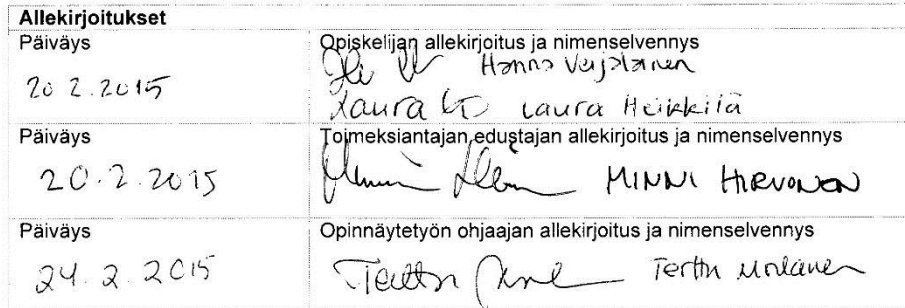 Allekirjoitukset
Päiväys
Opiskelijan allekirjoitus ja nimenselvennys
20.2.2015
Hanna Veijalainen
Laura Laura Heikkilä
Päiväys
Toimeksiantajan edustajan allekirjoitus ja nimenselvennys
20.2.2015
MINNI HIRVONEN
Päiväys
Opinnäytetyön ohjaajan allekirjoitus ja nimenselvennys
24.2.2015
Terttu Terttu